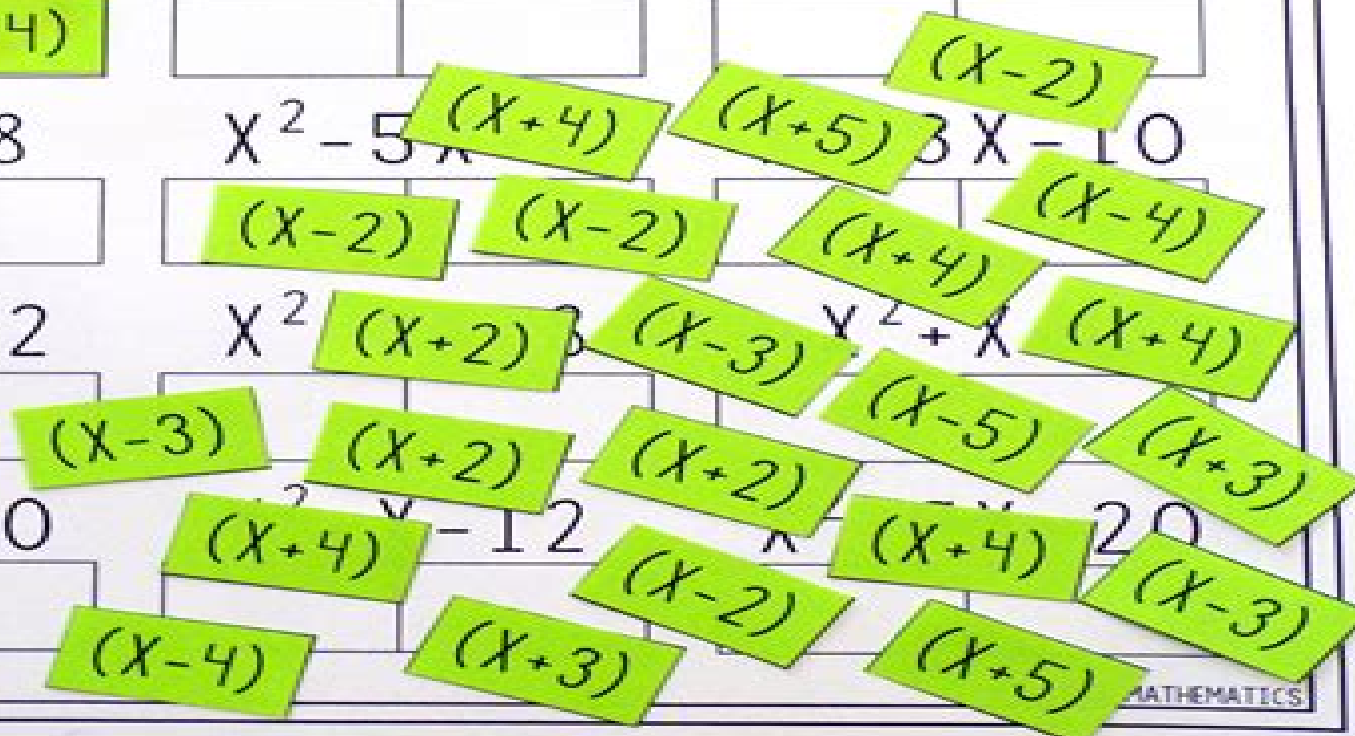 4)
(X-2)
(X+4)
(X+5)
8
X² - 5X
3X - 10
(X-4)
(X-2)
(X-2)
(X+4)
2
X²
(X+2)
(X-3)
X² + X
(X+4)
(X-3)
(X+2)
(X+2)
(X-5)
(X+3)
0
(X+4)
² X - 12
(X+4)
20
(X-2)
(X-3)
(X-4)
(X+3)
(X+5)
MATHEMATICS